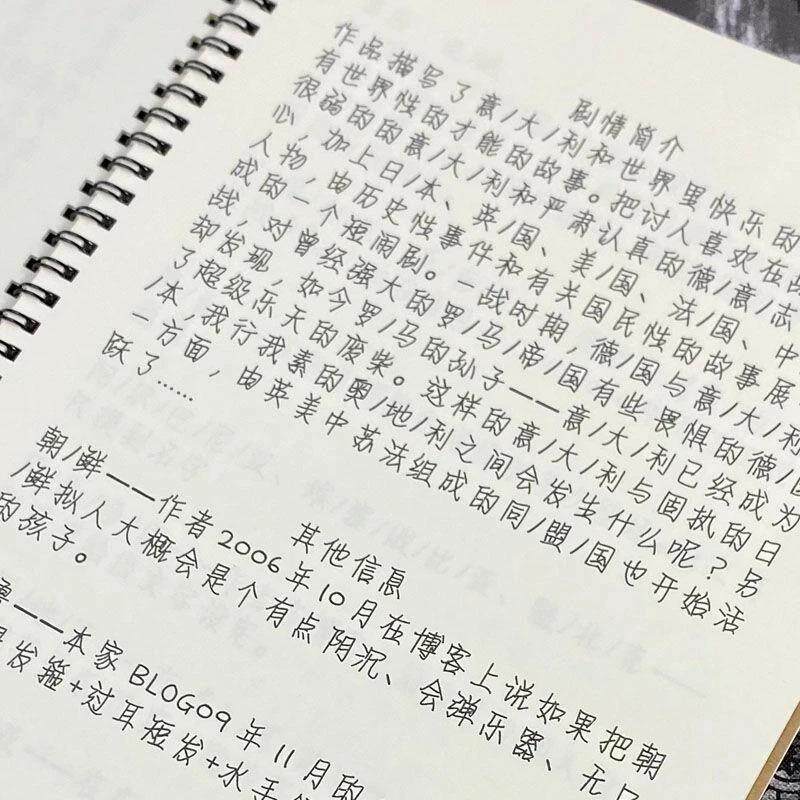 剧情简介
作品描写了意/大/利和世界里快乐的
有世界性的才能的故事。把讨人喜欢在战
很弱的的意/大/利和严肃认真的德/意/志
心，加上日/本、英/国、美/国、法/国、中
人物，由历史性事件和有关国民性的故事展
成的一个短闹剧。一战时期，德/国与意/大/利
战，对曾经强大的罗/马/帝/国有些畏惧的德/国
却发现，如今罗/马的孙子——意/大/利已经成为
了超级乐天的废柴。这样的意/大/利与固执的日
/本，我行我素的奥/地/利之间会发生什么呢？另
一方面，由英美中苏法组成的同/盟/国也开始活
跃了……
其他信息
朝/鲜——作者2006年10月在博客上说如果把朝
/鲜拟人大概会是个有点阴沉、会弹乐器、无口
的孩子。
——本家BLOG09年11月的
发箍+过耳短发+水手